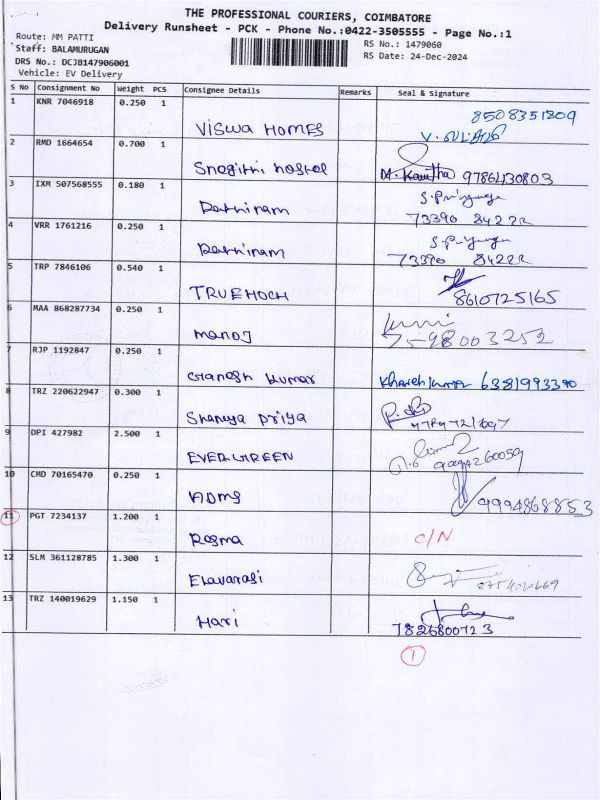 THE PROFESSIONAL COURIERS, COIMBATORE
Delivery Runsheet - PCK - Phone No.:0422-3505555 - Page No.:1
Route: MM PATTI
RS No.: 1479060
Staff: BALAMURUGAN
RS Date: 24-Dec-2024
DRS No.: DCJB147906001
Vehicle: EV Delivery
S No Consignment No Weight PCS Consignee Details Remarks Seal & Signature
1 KNR 7046918 0.250 1 Viswa HOMES 8508351809
2 RMD 1664654 0.700 1 M. Kavitha 9786430803
3 IXM 507568555 0.180 1 Rathinam S. Priyanga
73390 84222
4 VRR 1761216 0.250 1 Rathinam S. Priyanga
73390 84222
5 TRP 7846106 0.540 1 TRUEHOCH 8610725165
6 MAA 868287734 0.250 1 manoj
7598003252
7 RJP 1192847 0.250 1 Ganesh kumar 6381993390
8 TRZ 220622947 0.300 1 Priya
9 DPI 427982 2.500 1 EVERGREEN
10 CMD 70165470 0.250 1 ADMS 9994868853
11 PGT 7234137 1.200 1 Rosma C/N
12 SLM 361128785 1.300 1 Elavarasi
13 TRZ 140019629 1.150 1 Hari
7826800723
1